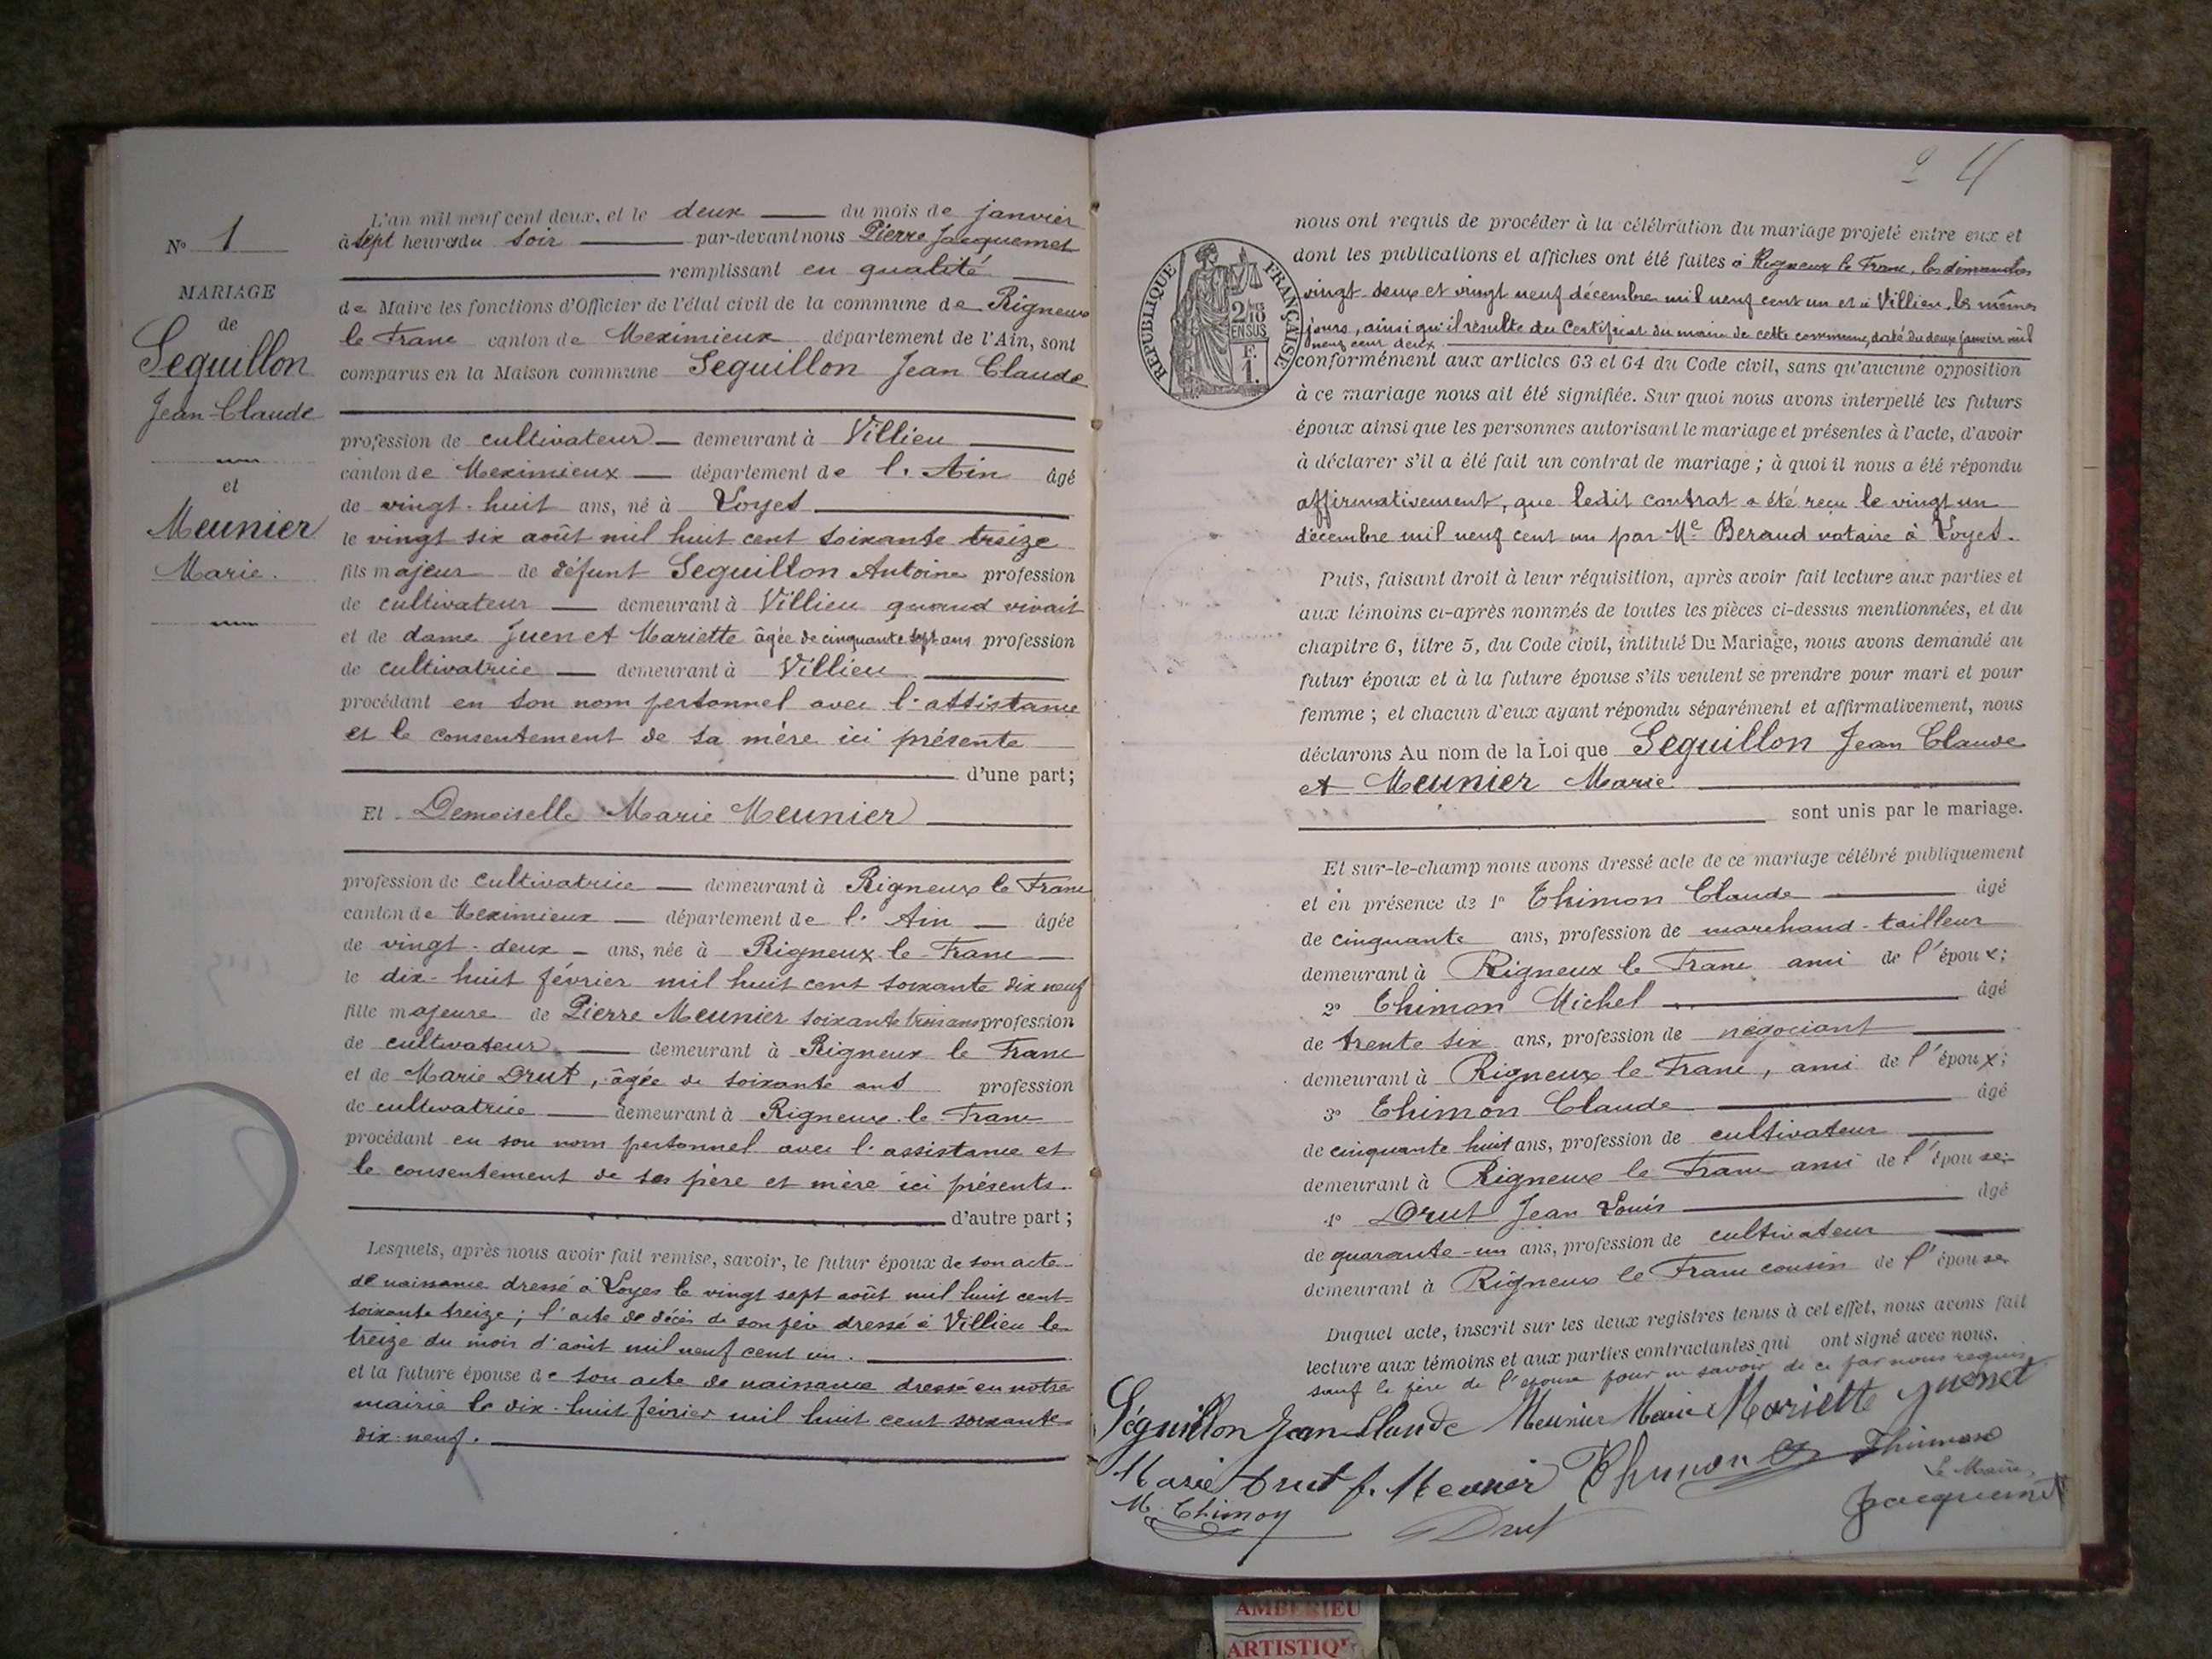 N° 1
MARIAGE
de
Seguillon
Jean-Claude
et
Meunier
Marie.
L'an mil neuf cent deux, et le deux du mois de janvier
à sept heures du soir par-devant nous Pierre Jacquemet
remplissant en qualité
de Maire les fonctions d'Officier de l'état civil de la commune de Rigneux
le Franc canton de Meximieux département de l'Ain, sont
comparus en la Maison commune Seguillon Jean Claude
profession de cultivateur demeurant à Villieu
canton de Meximieux département de l'Ain âgé
de vingt-huit ans, né à Loyes
le vingt six août mil huit cent soixante treize
fils majeur de défunt Seguillon Antoine profession
de cultivateur demeurant à Villieu quand vivait
et de dame Juenet Mariette âgée de cinquante sept ans profession
de cultivatrice demeurant à Villieu
procédant en son nom personnel avec l'assistance
et le consentement de sa mère ici présente
d'une part;
Et Demoiselle Marie Meunier
profession de cultivatrice demeurant à Rigneux le Franc
canton de Meximieux département de l'Ain âgée
de vingt-deux ans, née à Rigneux-le-Franc
le dix-huit février mil huit cent soixante dix neuf
fille majeure de Pierre Meunier soixante trois ans profession
de cultivateur demeurant à Rigneux le Franc
et de Marie Drut, âgée de soixante ans profession
de cultivatrice demeurant à Rigneux-le-Franc
procédant en son nom personnel avec l'assistance et
le consentement de ses père et mère ici présents.
d'autre part;
Lesquels, après nous avoir fait remise, savoir, le futur époux de son acte
de naissance dressé à Loyes le vingt sept août mil huit cent
soixante treize; l'acte de décès de son père dressé à Villieu le
treize du mois d'août mil neuf cent un.
et la future épouse de son acte de naissance dressé en notre
mairie le dix-huit février mil huit cent soixante
dix-neuf.
2 4
RÉPUBLIQUE FRANÇAISE
2/10
EN SUS
F.
1.
nous ont requis de procéder à la célébration du mariage projeté entre eux et
dont les publications et affiches ont été faites à Rigneux le Franc, les dimanches
vingt-deux et vingt neuf décembre mil neuf cent un et à Villieu, les mêmes
jours, ainsi qu'il résulte du certificat du maire de cette commune, daté du deux janvier mil
neuf cent deux.
conformément aux articles 63 et 64 du Code civil, sans qu'aucune opposition
à ce mariage nous ait été signifiée. Sur quoi nous avons interpellé les futurs
époux ainsi que les personnes autorisant le mariage et présentes à l'acte, d'avoir
à déclarer s'il a été fait un contrat de mariage; à quoi il nous a été répondu
affirmativement, que ledit contrat a été reçu le vingt un
décembre mil neuf cent un par Me Beraud notaire à Loyes.
Puis, faisant droit à leur réquisition, après avoir fait lecture aux parties et
aux témoins ci-après nommés de toutes les pièces ci-dessus mentionnées, et du
chapitre 6, titre 5, du Code civil, intitulé Du Mariage, nous avons demandé au
futur époux et à la future épouse s'ils veulent se prendre pour mari et pour
femme; et chacun d'eux ayant répondu séparément et affirmativement, nous
déclarons Au nom de la Loi que Seguillon Jean Claude
et Meunier Marie
sont unis par le mariage.
Et sur-le-champ nous avons dressé acte de ce mariage célébré publiquement
et en présence de 1° Thimon Claude âgé
de cinquante ans, profession de marchand-tailleur
demeurant à Rigneux le Franc ami de l'époux;
2° Thimon Michel âgé
de trente six ans, profession de négociant
demeurant à Rigneux le Franc, ami de l'époux;
3° Thimon Claude âgé
de cinquante huit ans, profession de cultivateur
demeurant à Rigneux le Franc ami de l'épouse;
4° Drut Jean Louis âgé
de quarante-un ans, profession de cultivateur
demeurant à Rigneux le Franc cousin de l'épouse
Duquel acte, inscrit sur les deux registres tenus à cet effet, nous avons fait
lecture aux témoins et aux parties contractantes qui ont signé avec nous.
sauf le père de l'épouse pour ne savoir de ce par nous requis
Séguillon Jean Claude Meunier Marie Mariette Juenet
Marie Drut f. Meunier Thimon Thimon
Le Maire,
M. Thimon Drut Jacquemet
AMBERIEU
ARTISTIQU